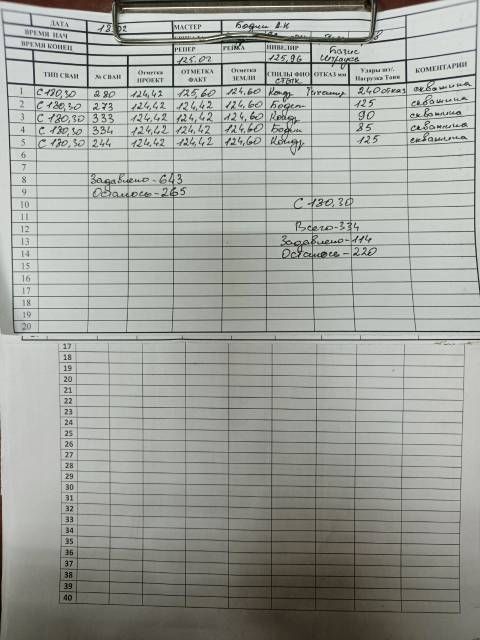 ДАТА 13.02 МАСТЕР Бодни А.К
ВРЕМЯ НАЧ
ВРЕМЯ КОНЕЦ РЕПЕР РЕЙКА НИВЕЛИР Базис
125.02 125,96
ТИП СВАИ № СВАИ Отметка ПРОЕКТ ОТМЕТКА ФАКТ Отметка ЗЕМЛИ СПИЛЫ ФИО стык. ОТКАЗ мм Удары шт/. Нагрузка Тонн КОММЕНТАРИИ
1 С 130,30 280 124,42 125,60 124,60 240 отказ скважина
2 С 130,30 273 124,42 124,42 124,60 125 скважина
3 С 130,30 333 124,42 124,42 124,60 90 скважина
4 С 130,30 334 124,42 124,42 124,60 85 скважина
5 С 130,30 244 124,42 124,42 124,60 125 скважина
6
7
8 Задавлено-643
9 Осталось-265
10 С 130,30
11
12 Всего-334
13 Задавлено-114
14 Осталось-220
15
16
17
18
19
20
17
18
19
20
21
22
23
24
25
26
27
28
29
30
31
32
33
34
35
36
37
38
39
40